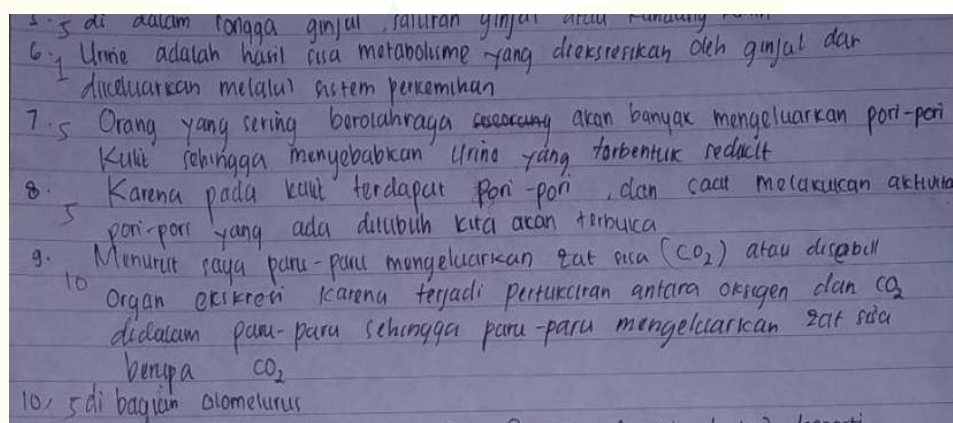 5 di dalam rongga ginjal, saluran ginjal atau kandung
6. Urine adalah hasil sisa metabolisme yang diekskresikan oleh ginjal dan
1 dikeluarkan melalui sistem perkemihan
7. 5 Orang yang sering berolahraga akan banyak mengeluarkan pori-pori
Kulit sehingga menyebabkan urine yang terbentuk sedikit
8. Karena pada kulit terdapat pori-pori, dan saat melakukan aktivita
5 pori-pori yang ada ditubuh kita akan terbuka
9. Menurut saya paru-paru mengeluarkan zat sisa (CO2) atau
10 Organ ekskresi karena terjadi pertukaran antara oksigen dan CO2
didalam paru-paru sehingga paru-paru mengeluarkan zat sisa
berupa CO2
10, 5 di bagian Glomelurus